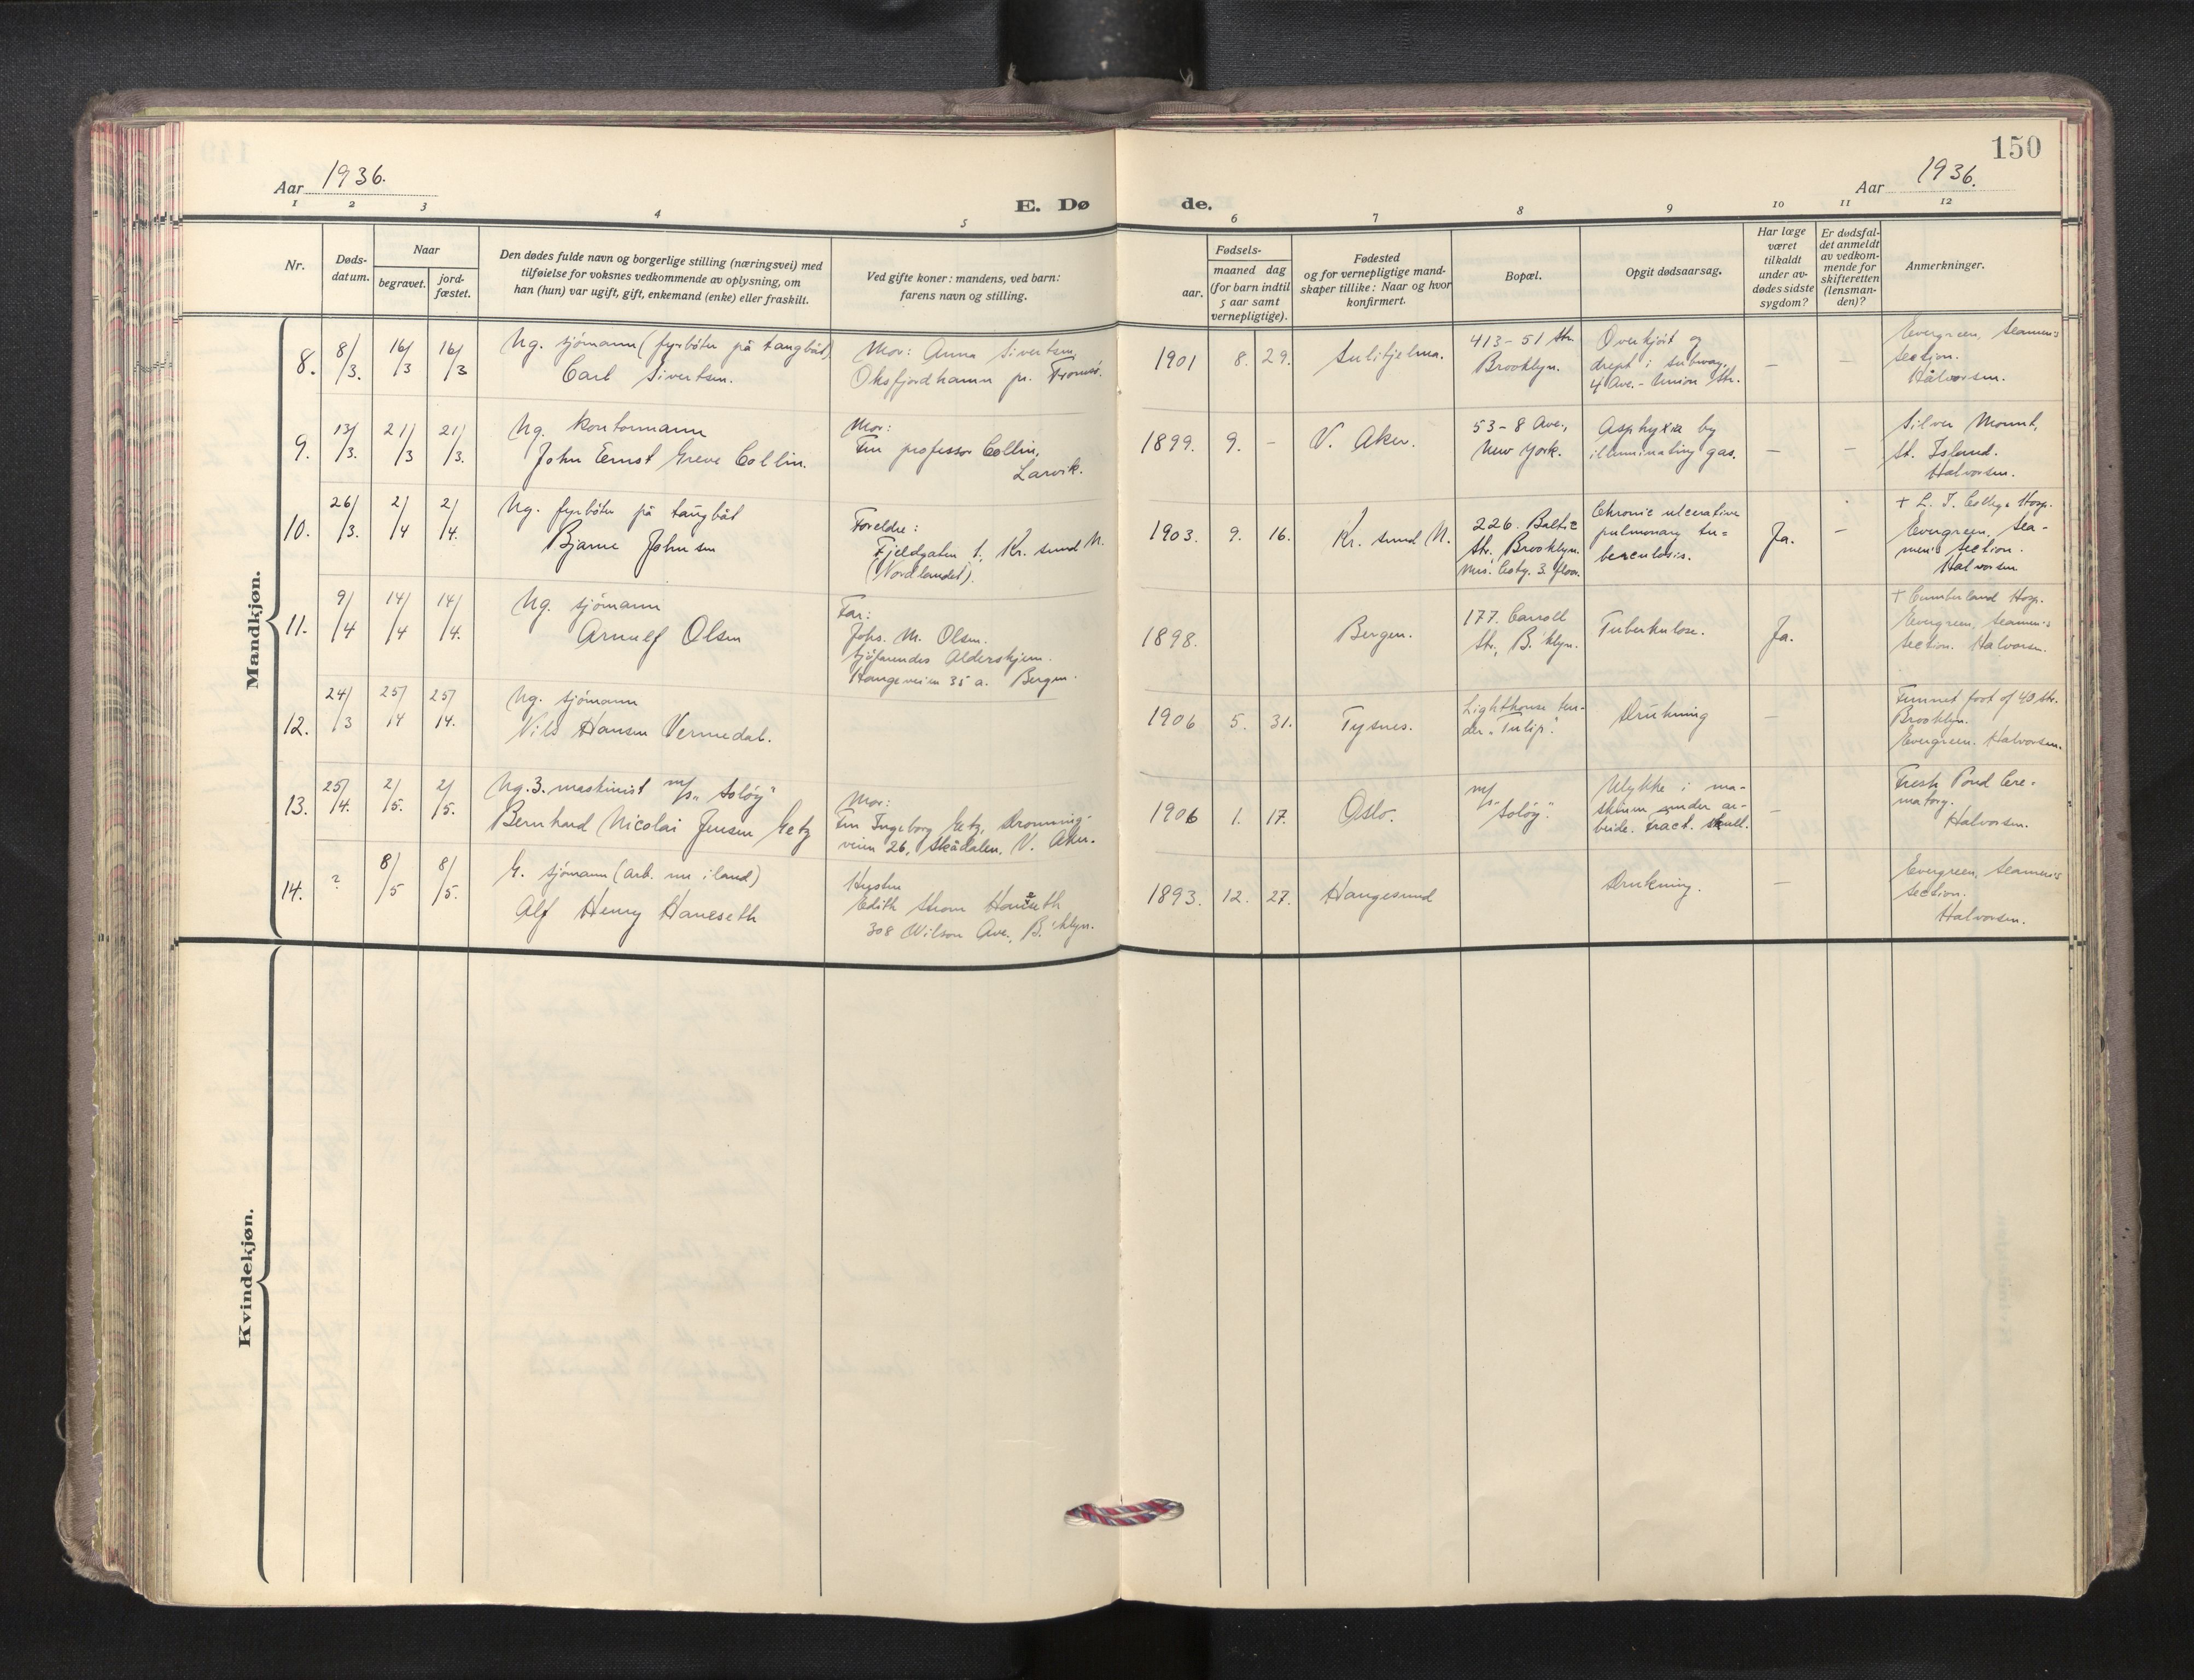 150
Aar 1936.
Aar 1936.
E. Dø
de.
1 2 3 4 5 6 7 8 9 10 11 12
Nr.
Døds-
datum.
Naar
begravet.
jord-
fæstet.
Den dødes fulde navn og borgerlige stilling (næringsvei) med
tilføielse for voksnes vedkommende av oplysning, om
han (hun) var ugift, gift, enkemand (enke) eller fraskilt.
Ved gifte koner: mandens, ved barn:
farens navn og stilling.
Fødsels-
aar.
maaned dag
(for barn indtil
5 aar samt
vernepligtige).
Fødested
og for vernepligtige mand-
skaper tillike: Naar og hvor
konfirmert.
Bopæl.
Opgit dødsaarsag.
Har læge
været
tilkaldt
under av-
dødes sidste
sygdom?
Er dødsfal-
det anmeldt
av vedkom-
mende for
skifteretten
(lensman-
den)?
Anmerkninger.
Mandkjøn.
8.
8/3.
16/3
16/3
Ug. sjömann (fyrböter på taugbåt)
Carl Sivertsen.
Mor: Anna Sivertsen,
Oksfjordhamn pr. Tromsö.
1901
8.
29.
Sulitjelma.
413-51 Str.
Brooklyn.
Overkjört og
drept i subway,
4 Ave. - Union Str.
—
—
Evergreen, Seamen's
section.
Halvorsen.
9.
13/3.
21/3
21/3.
Ug. kontormann
John Ernst Greve Collin.
Mor:
Fru professor Collin,
Larvik.
1899.
9.
-
V. Aker.
53-8 Ave.,
New York.
Asphyxia by
illuminating gas.
—
—
Silver Mount,
St. Island.
Halvorsen.
10.
26/3.
2/4
2/4.
Ug. fyrböter på taugbåt
Bjarne Johnsen
Foreldre:
Fjeldgaten 1, Kr. sund N.
(Nordlandet).
1903.
9.
16.
Kr. sund N.
226. Baltic
Str., Brooklyn.
3. floor.
Chronic ulcerative
pulmonary tu=
berculosis.
Ja.
—
+ L. I. College Hosp.
Evergreen, Sea-
men's section.
Halvorsen
11.
9/4
14/4
14/4.
Ug. sjömann
Arnulf Olsen
Far:
Johs. M. Olsen.
Sjöfarendes Aldershjem.
Haugeveien 35 a. Bergen.
1898.
Bergen.
177. Carroll
Str., B.'klyn.
Tuberkulose.
Ja.
+ Cumberland Hosp.
Evergreen, Seamen's
section. Halvorsen.
12.
24/3
25/14
25/14.
Ug. sjömann
Nils Hansen Vermedal.
1906
5.
31.
Tysnes.
Lighthouse ten-
der „Tulip".
Drukning
—
Funnet foot of 40 Str.
Brooklyn.
Evergreen. Halvorsen.
13.
25/4.
2/5.
2/5.
Ug. 3. maskinist m/s „Solöy"
Bernhard Nicolai Jensen Getz
Mor:
Fru Ingeborg Getz, Dronning-
veien 26, Skådalen, V. Aker.
1906
1.
17.
Oslo.
m/s
„Solöy".
Ulykke i ma-
skinen under ar-
beide. Fract. skull.
—
Fresh Pond Cre-
matory.
Halvorsen.
14.
?
8/5
8/5.
G. sjömann (arb. nu i land)
Alf Henry Haneseth
Hustru
Edith Strom Haneseth
308 Wilson Ave., B.'klyn.
1893.
12.
27.
Haugesund
Drukning.
—
Evergreen, Seamen's
section.
Halvorsen.
Kvindekjøn.